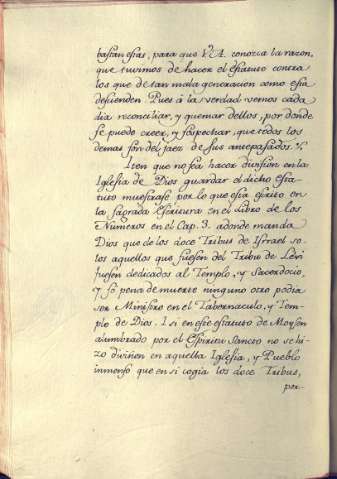 bastan estas, para que V.A. conozca la razon,
que tuvimos de hacer el estatuto contra
los que de tan mala generacion como esta
descienden Pues à la verdad vemos cada
dia reconciliar, y quemar dellos, por donde
se puede creer, y sospechar, que todos los
demas son del jaez de sus antepasados.
Iten que no sea hacer division en la
Iglesia de Dios guardar el dicho esta
tuto muestrase por lo que esta escrito en
la sagrada Escritura en el libro de los
Numeros en el Cap. 3. adonde manda
Dios que de los doce Tribus de Israel so
los aquellos que fuesen del Tribu de Levi
fuesen dedicados al Templo, y Sacerdocio,
y so pena de muerte ninguno otro podia
ser Ministro en el Tabernaculo, y Tem-
plo de Dios. I si en este estatuto de Moysen
alumbrado por el Espiritu Sancto no se hi-
zo division en aquella Iglesia, y Pueblo
inmenso que en si cogia los doce Tribus,
por-